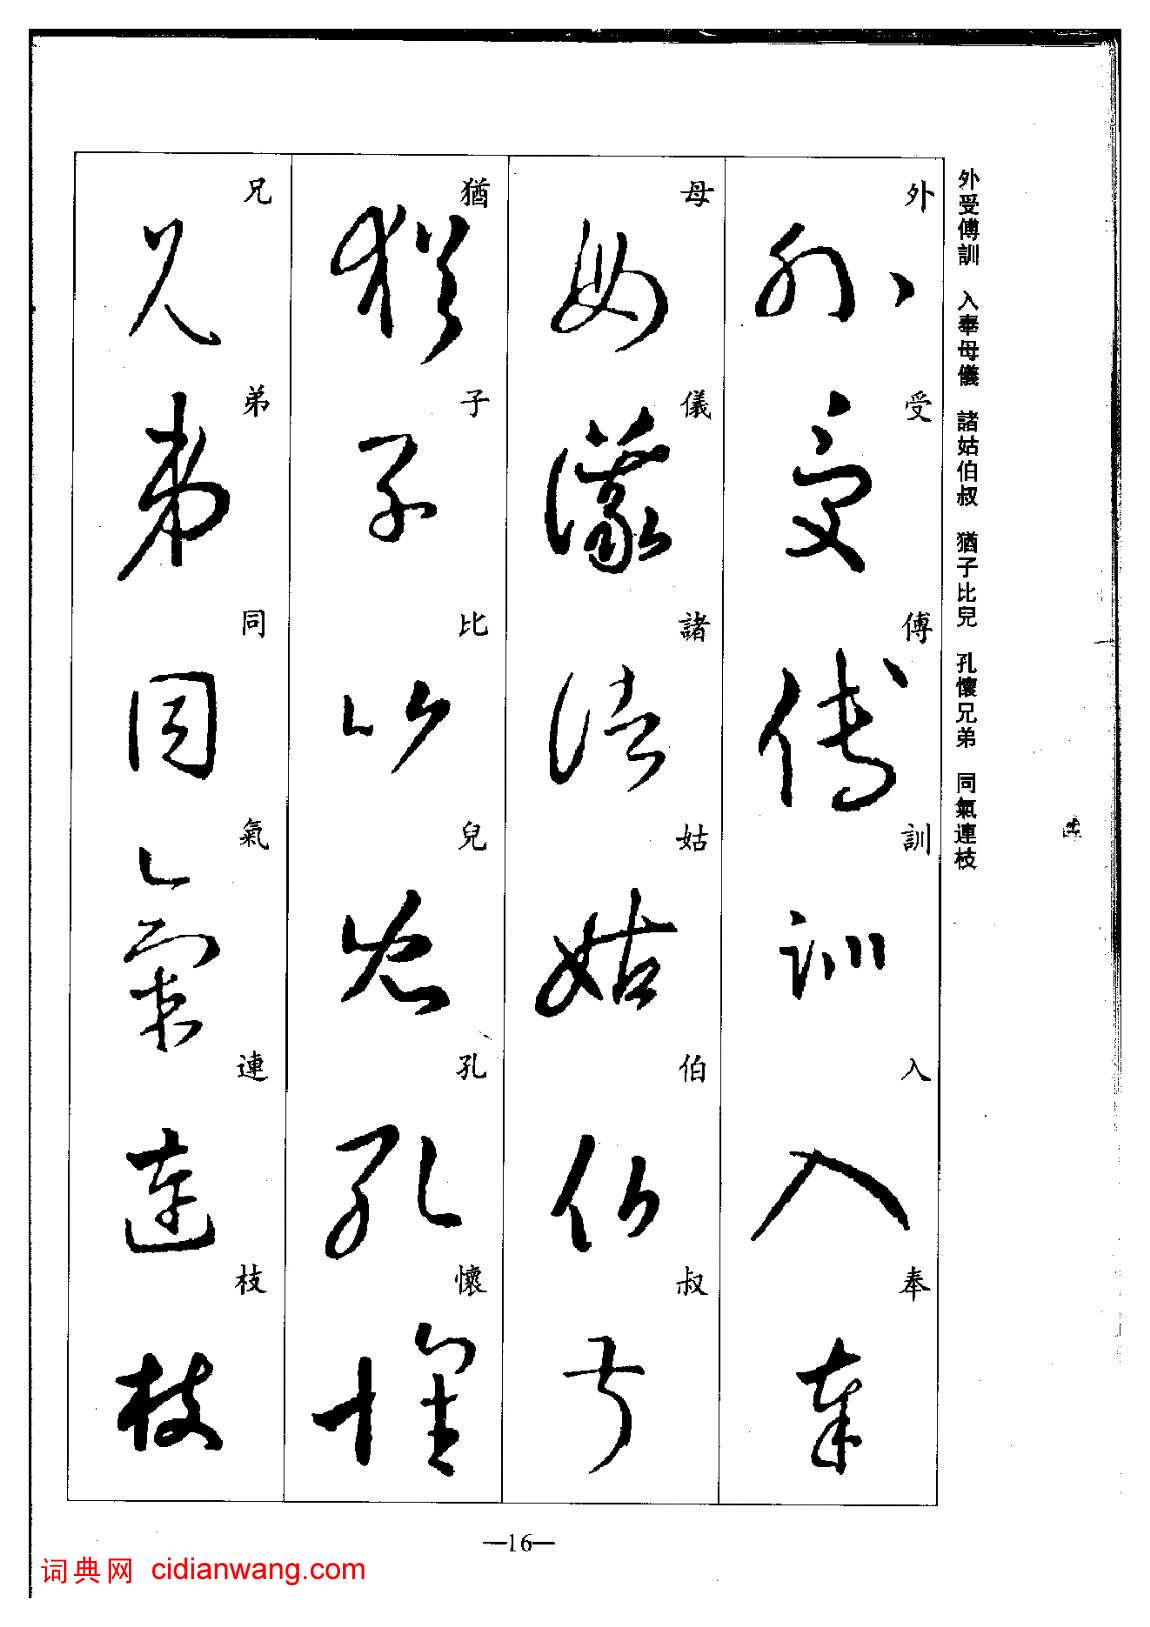 外受傅訓 入奉母儀 諸姑伯叔 猶子比兒 孔懷兄弟 同氣連枝
外受傅訓入奉
母儀諸姑伯叔
猶子比兒孔懷
兄弟同氣連枝
—16—
词典网 cidianwang.com